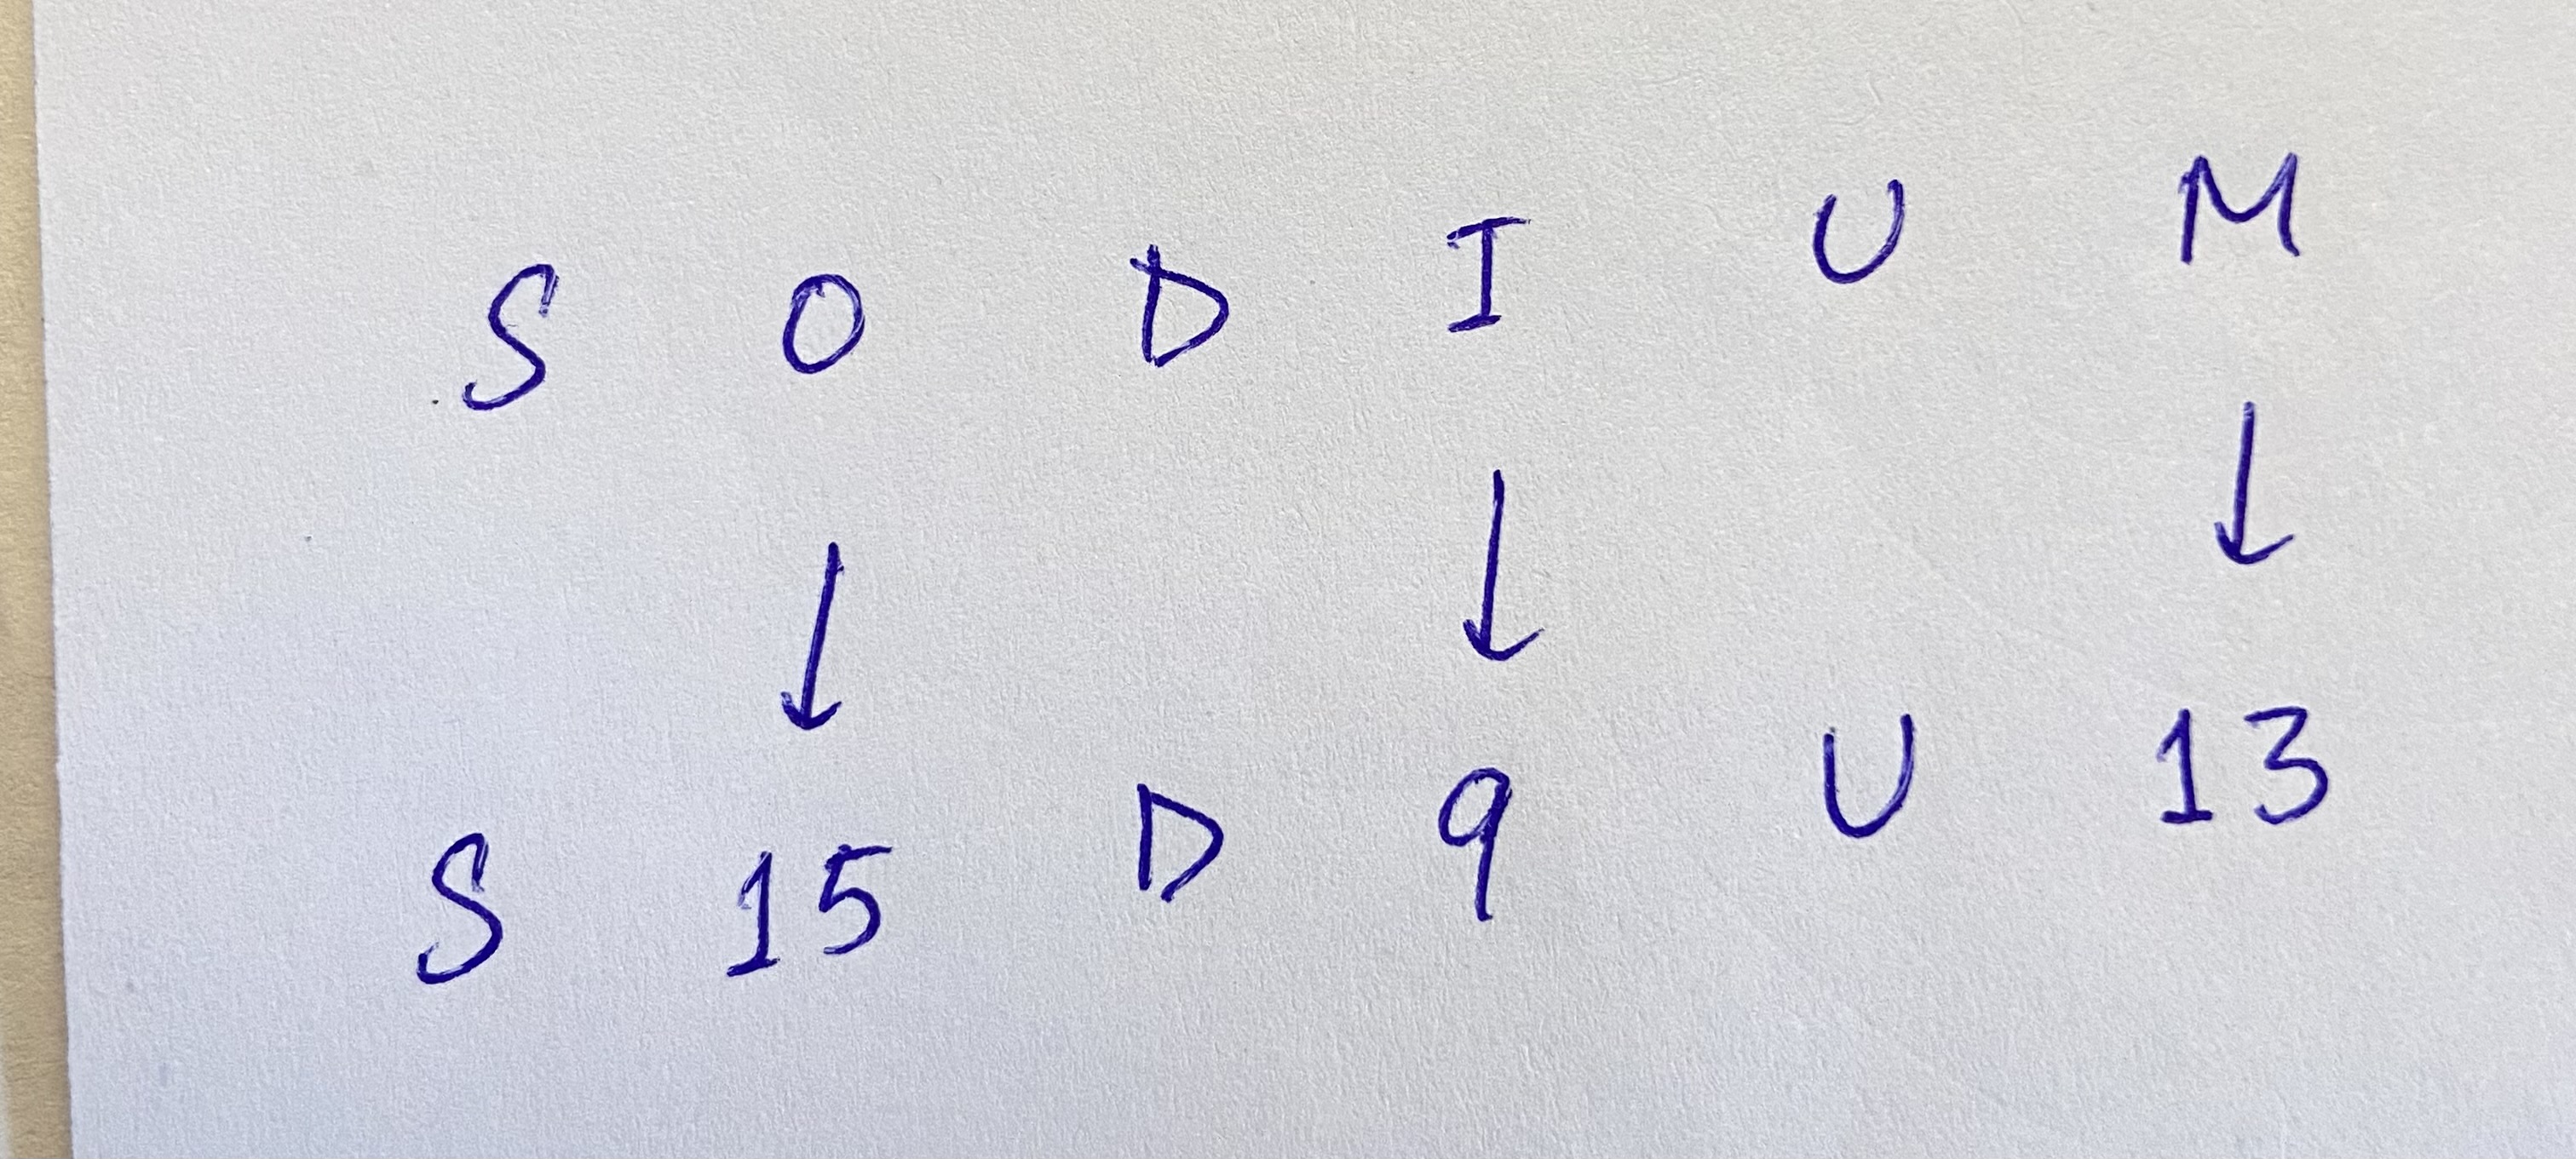 S O D I U M
↓ ↓ ↓
S 15 D 9 U 13